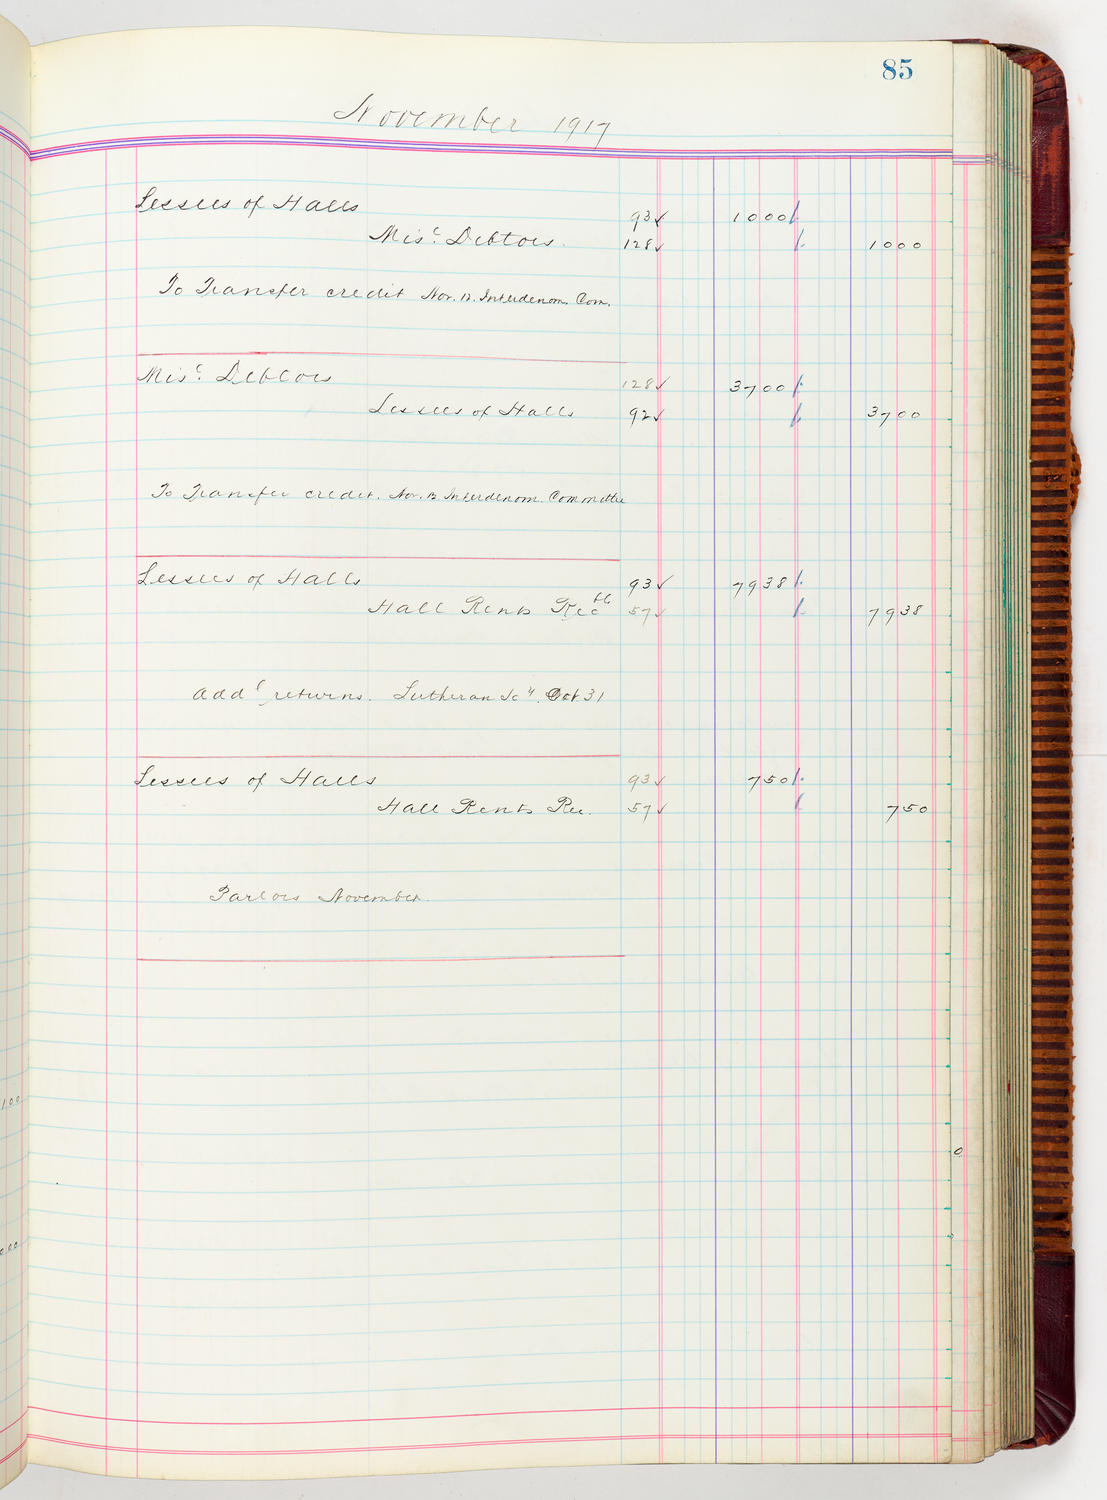 85
November 1917
Lessees of Halls 93✓ 1000
Misc. Debtors. 128✓ 1000
To Transfer credit Nov. 12. Interdenom. Com.
Misc. Debtors 128✓ 3700
Lessees of Halls 92✓ 3700
To Transfer credit. Nov. 12 Interdenom. Committee
Lessees of Halls 93✓ 7938
Hall Rents Rec'ble 57✓ 7938
Add'l returns. Lutheran Soc'y. Oct 31
Lessees of Halls 93✓ 750
Hall Rents Rec. 57✓ 750
Parlors November.
100
000
0